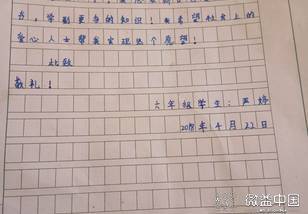 书，学到更多的知识！我希望社会上的
爱心人士帮我实现这个愿望！
此致
敬礼！
六年级学生：严婷
2018年4月22日
微益中国